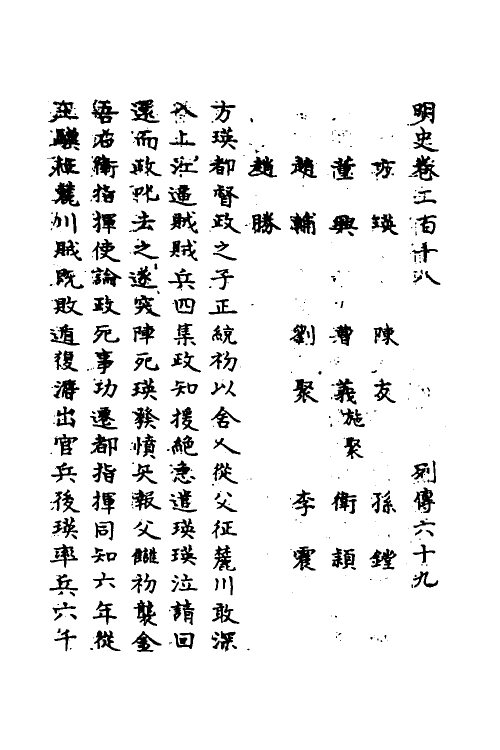 明史卷二百十八　列傳六十九
方瑛　陳友　孫鏜
董興　曹義施聚　衛頴
趙輔　劉聚　李震
趙勝
方瑛都督政之子正統初以舍人從父征麓川敢深
入上江逼賊賊兵四集政知援絕急遣瑛瑛泣請回
還而政叱去之遂突陣死瑛發憤矢報父讎初襲金
吾右衛指揮使論政死事功遷都指揮同知六年從
王驥征麓川賊既敗遁復潛出官兵後瑛率兵六千